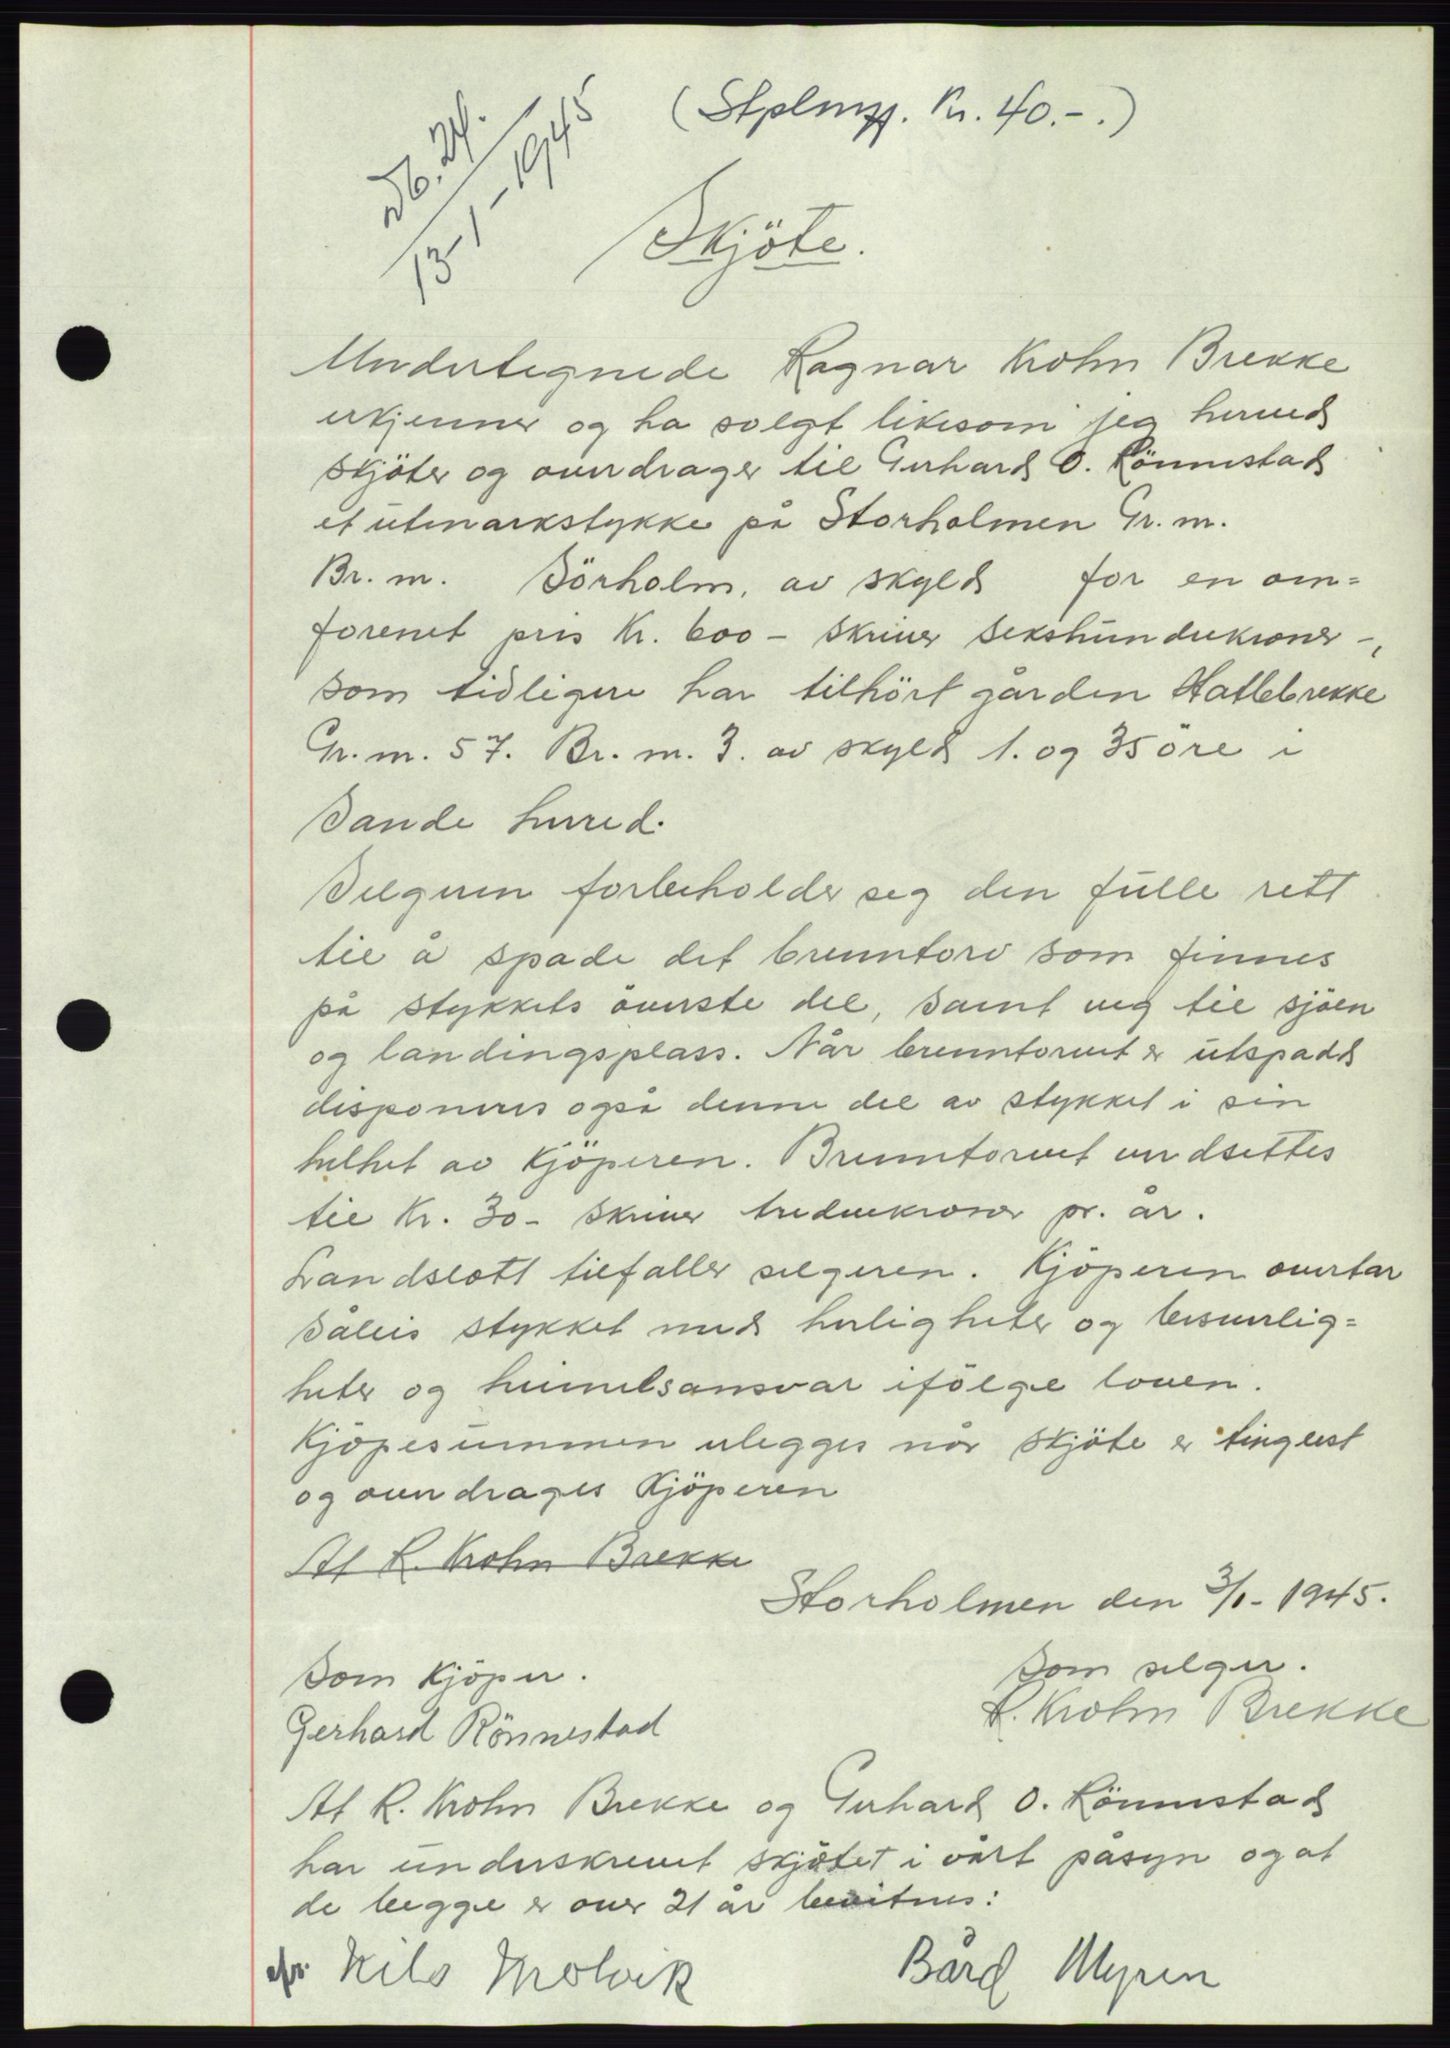 Db. 24.
13-1-1945
(Stplmpf. Kr. 40.-.)
Skjöte.
Undertegnede Ragnar Krohn Brekke
erkjenner og ha solgt likesom jeg herved
skjöter og overdrager til Gerhard O. Rönnestad
et utmarkstykke på Storholmen Gr. m.
Br. m. Sörholm, av skyld for en om=
forenet pris Kr. 600 - skriver sekshundrekroner -,
som tidligere har tilhört gården Hatlebrekke
Gr. m. 57. Br. m. 3. av skyld 1. og 35 öre i
Sande herred.
Selgeren forbeholder seg den fulle rett
til å spade det brenntorv som finnes
på stykkets överste del, samt veg til sjöen
og landingsplass. Når brenntorvet er utspadd
disponeres også denne del av stykket i sin
helhet av kjöperen. Brenntorvet verdsettes
til Kr. 30 - skriver tredvekroner pr. år.
Landslott tilfaller selgeren. Kjöperen overtar
såleis stykket med herligheter og besverlig=
heter og heimelsansvar ifölge loven.
Kjöpesummen erlegges når skjöte er tinglest
og overdrages Kjöperen
At R. Krohn Brekke
Storholmen den 3/1 - 1945.
Som kjöper.
Som selger.
Gerhard Rönnestad
R. Krohn Brekke
At R. Krohn Brekke og Gerhard O. Rönnestad
har underskrevet skjötet i vårt påsyn og at
de begge er over 21 år bevitnes:
Nils
Bård Myren